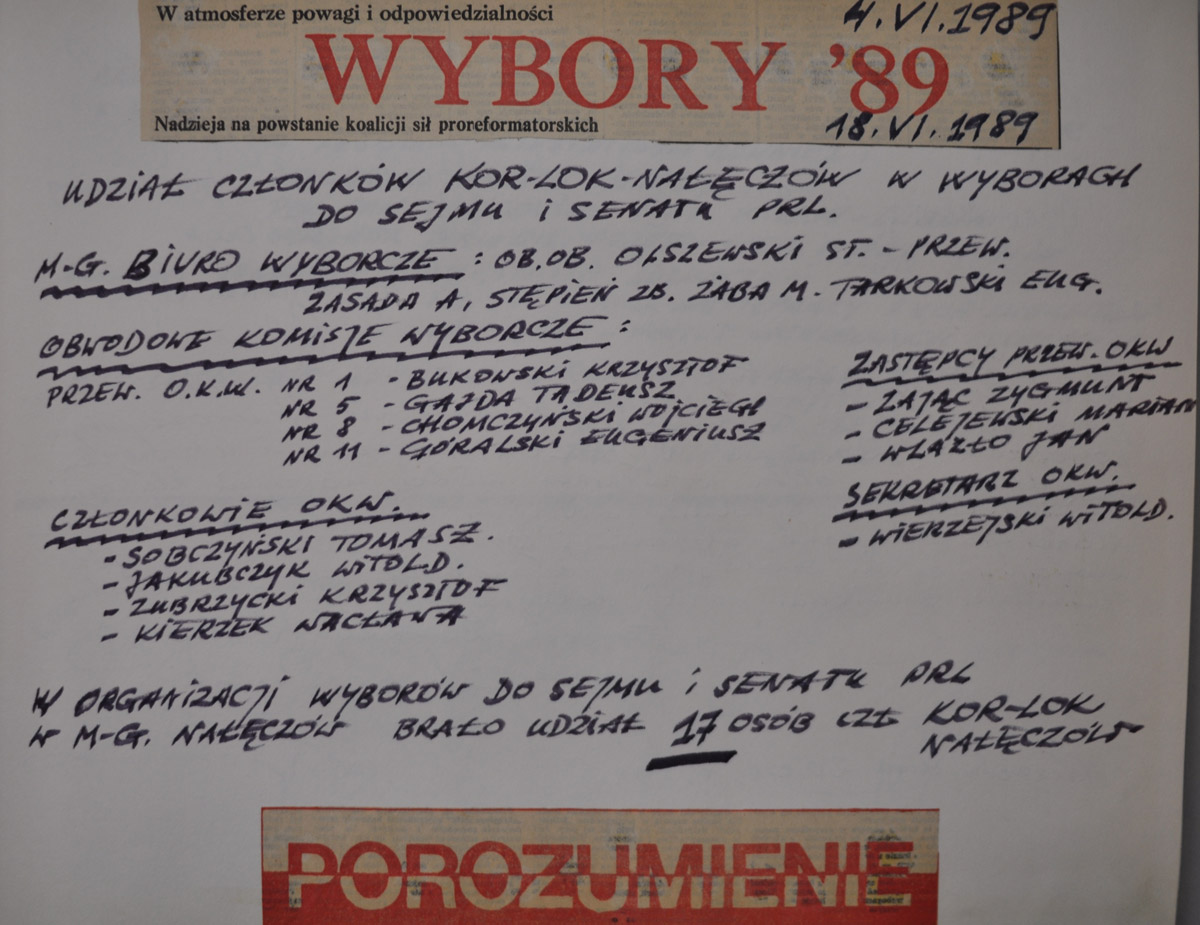 W atmosferze powagi i odpowiedzialności
4.VI.1989
WYBORY '89
Nadzieja na powstanie koalicji sił proreformatorskich
18.VI.1989
UDZIAŁ CZŁONKÓW KOR-LOK-NAŁĘCZÓW W WYBORACH
DO SEJMU i SENATU PRL.
M-G. BIURO WYBORCZE : OB.OB. OLSZEWSKI ST. - PRZEW.
ZASADA A, STĘPIEŃ ZB. ŻABA M. TARKOWSKI EUG.
OBWODOWE KOMISJE WYBORCZE :
PRZEW. O.K.W. NR 1 - BUKOWSKI KRZYSZTOF
NR 5 - GAJDA TADEUSZ
NR 8 - CHOMCZYŃSKI WOJCIECH
NR 11 - GÓRALSKI EUGENIUSZ
ZASTĘPCY PRZEW. OKW
- ZAJĄC ZYGMUNT
- CELEJEWSKI MARIAN
- WLAZŁO JAN
SEKRETARZ OKW.
- WIERZEJSKI WITOLD.
CZŁONKOWIE OKW.
- SOBCZYŃSKI TOMASZ.
- JAKUBCZYK WITOLD.
- ZUBRZYCKI KRZYSZTOF
- KIERZEK WACŁAWA
W ORGANIZACJI WYBORÓW DO SEJMU i SENATU PRL
W M-G. NAŁĘCZÓW BRAŁO UDZIAŁ 17 OSÓB CZŁ KOR-LOK
NAŁĘCZÓW
POROZUMIENIE